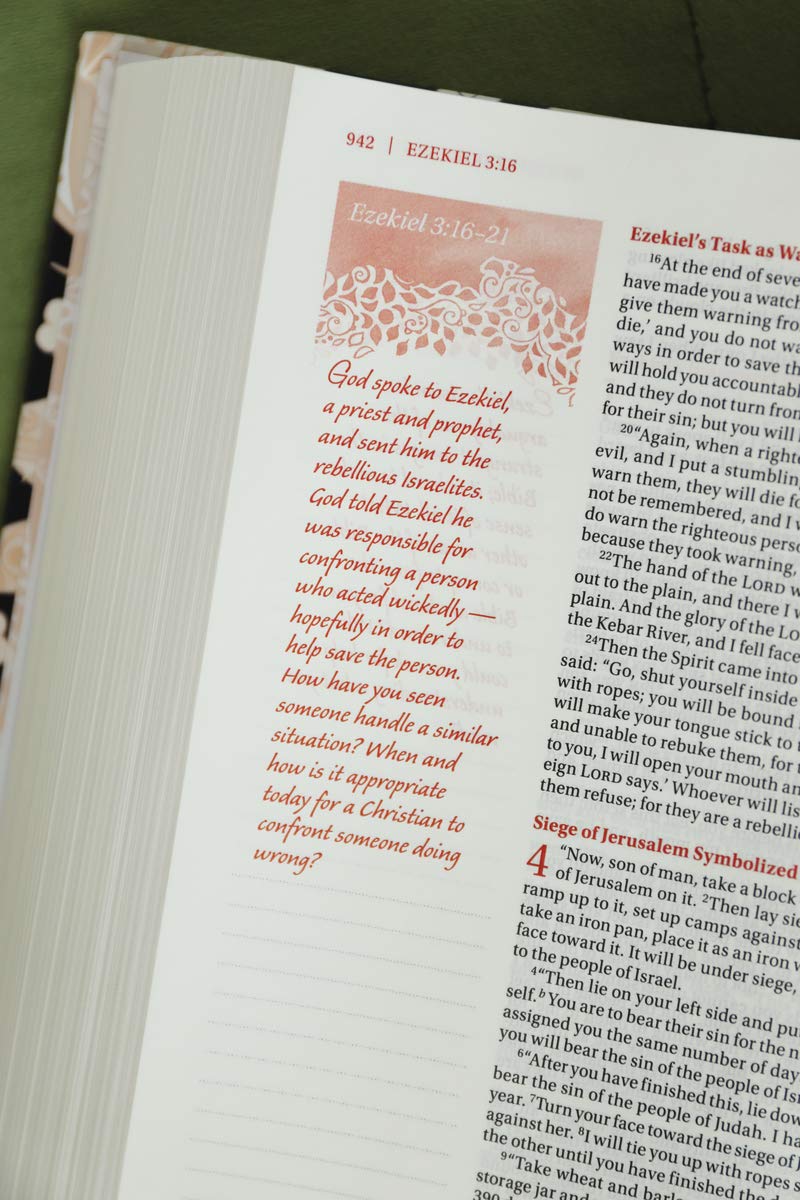 942 | EZEKIEL 3:16
Ezekiel 3:16–21
God spoke to Ezekiel,
a priest and prophet,
and sent him to the
rebellious Israelites.
God told Ezekiel he
was responsible for
confronting a person
who acted wickedly —
hopefully in order to
help save the person.
How have you seen
someone handle a similar
situation? When and
how is it appropriate
today for a Christian to
confront someone doing
wrong?
Ezekiel's Task as
16At the end of
have made you a
give them warning
die,' and you do not
ways in order to save
will hold you
and they do not turn
for their sin; but you will
20"Again, when a
evil, and I put a
warn them, they will die
not be remembered, and I
do warn the righteous
because they took warning,
22"The hand of the LORD
out to the plain, and there I
plain. And the glory of the
the Kebar River, and I fell
24Then the Spirit came into
said: "Go, shut yourself inside
with ropes; you will be bound
will make your tongue stick to
and unable to rebuke them, for
to you, I will open your mouth
eign LORD says.' Whoever will
them refuse; for they are a
Siege of Jerusalem Symbolized
4 "Now, son of man, take a block
of Jerusalem on it. 2Then lay
ramp up to it, set up camps against
take an iron pan, place it as an iron
face toward it. It will be under siege,
to the people of Israel.
4"Then lie on your left side and
self.b You are to bear their sin for the
assigned you the same number of
you will bear the sin of the people of
6"After you have finished this, lie
bear the sin of the people of Judah. I
year. 7Turn your face toward the siege of
against her. 8I will tie you up with ropes
the other until you have finished the
9"Take wheat and
storage jar and
390